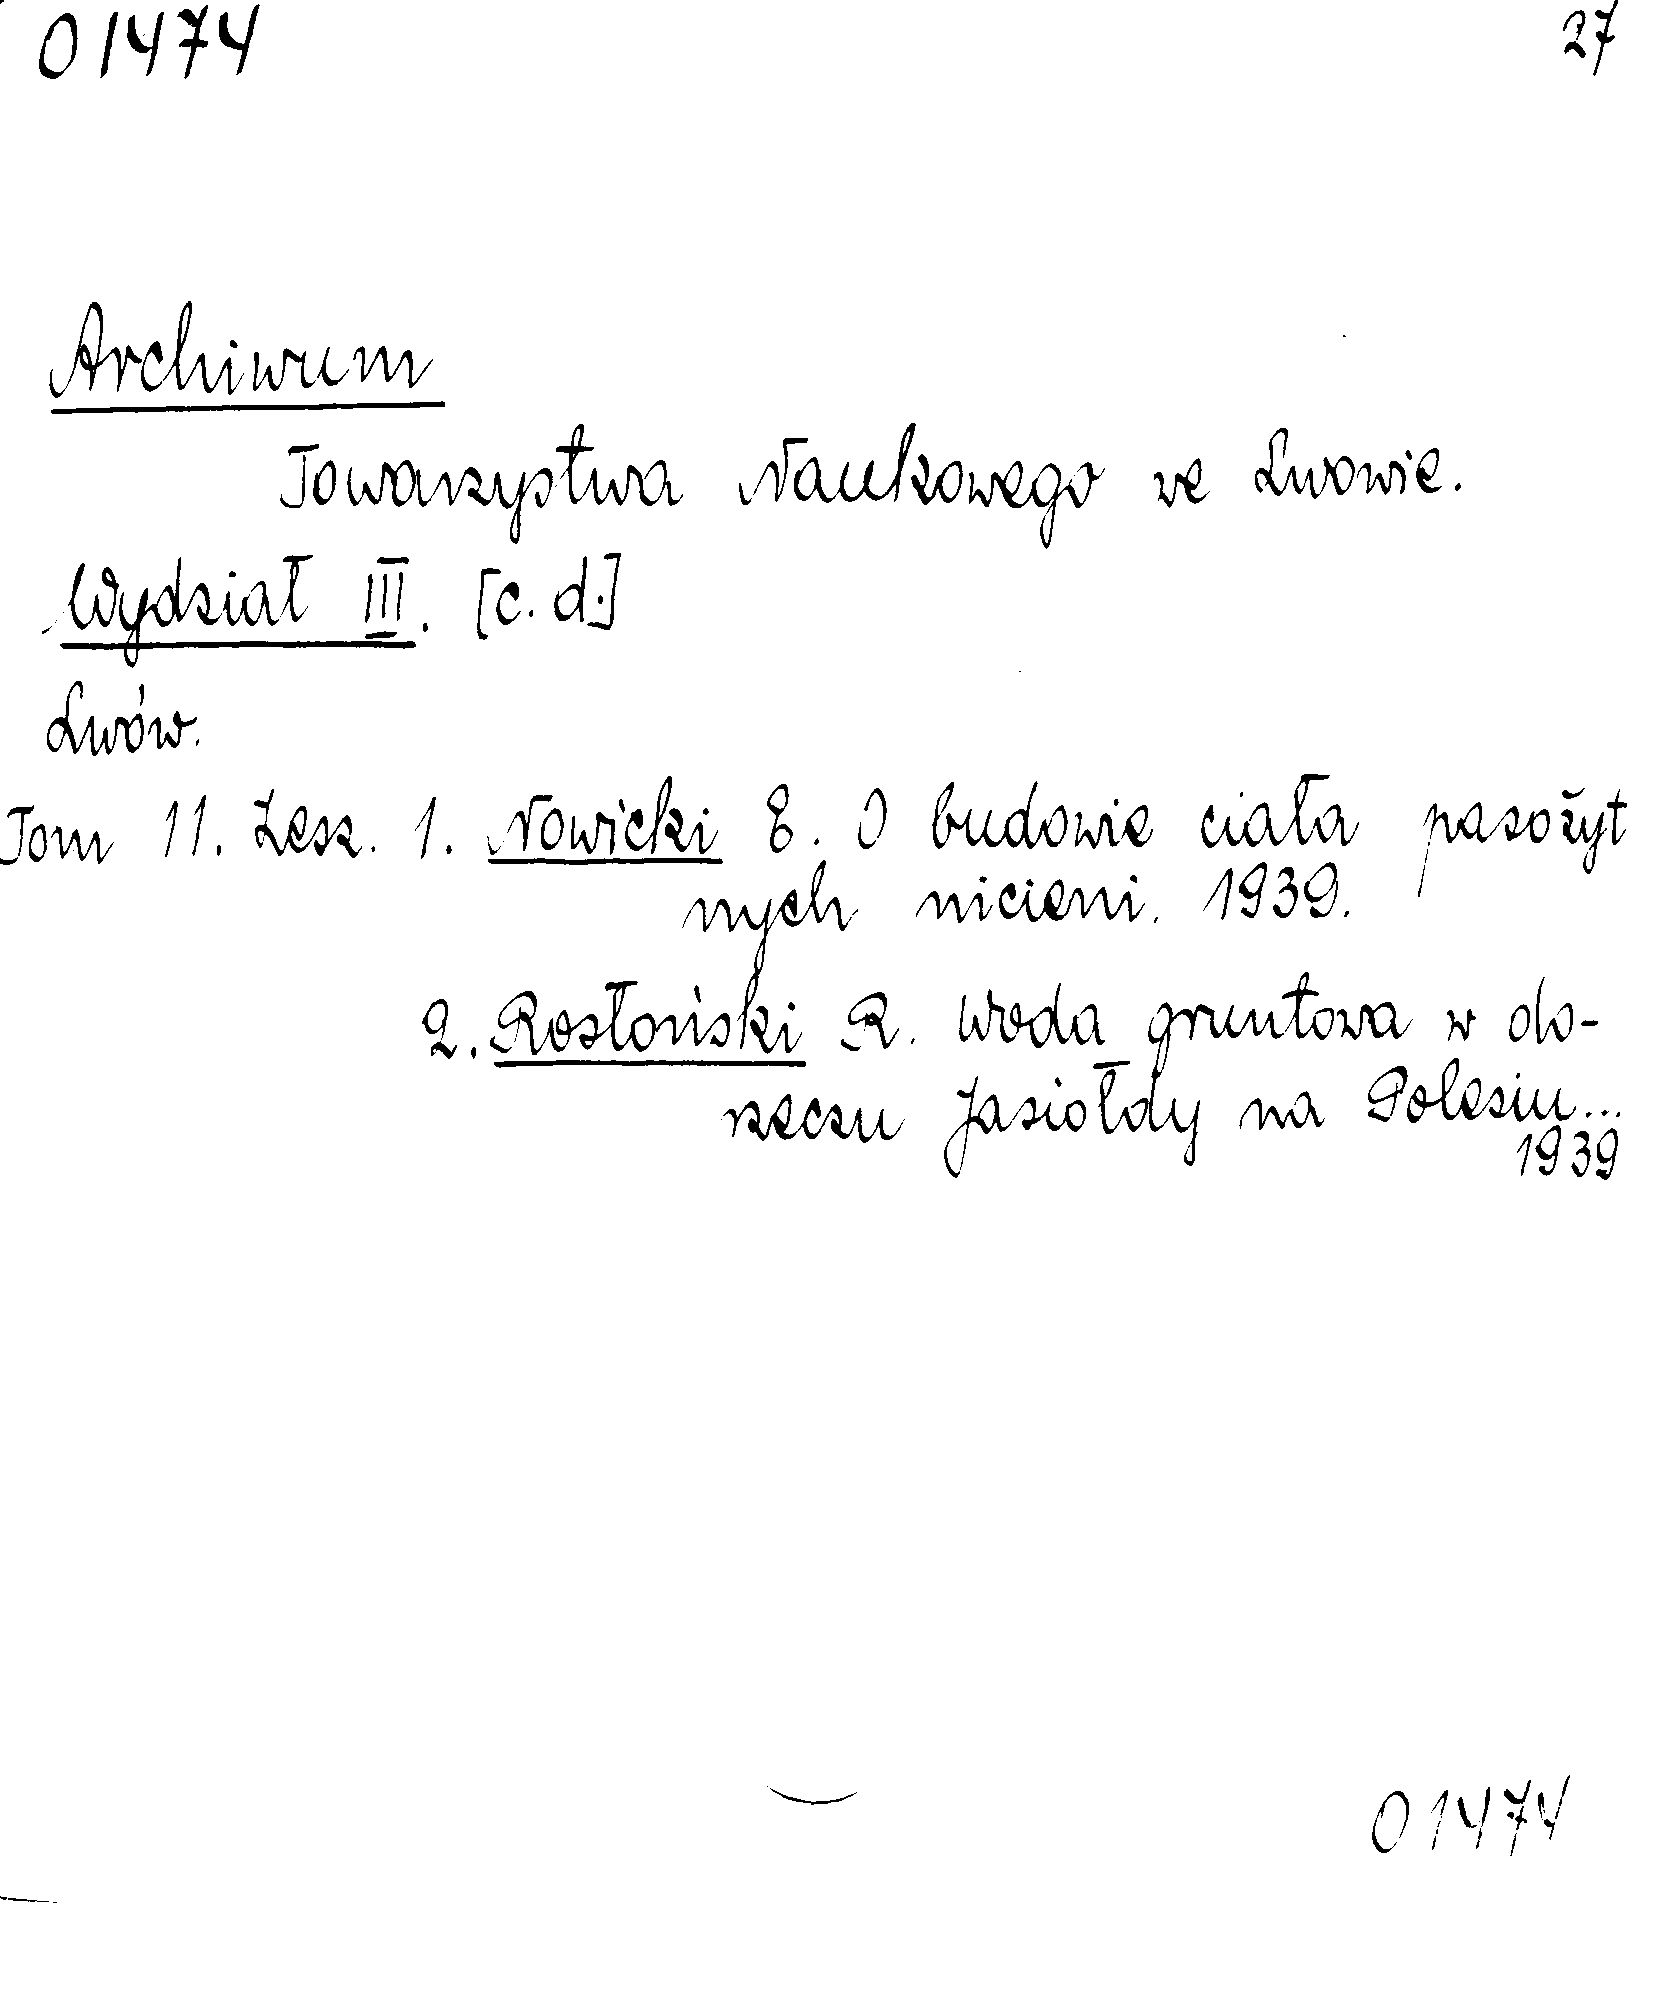 01474 27
Archiwum
Towarzystwa Naukowego we Lwowie.
Wydział III. [c. d.]
Lwów.
Tom 11. Zesz. 1. Nowicki E. O budowie ciała pasożyt
nych nicieni. 1939.
2. Rosłoński R. Woda gruntowa w do-
rzeczu Jasiołdy na Polesiu...
1939
01474